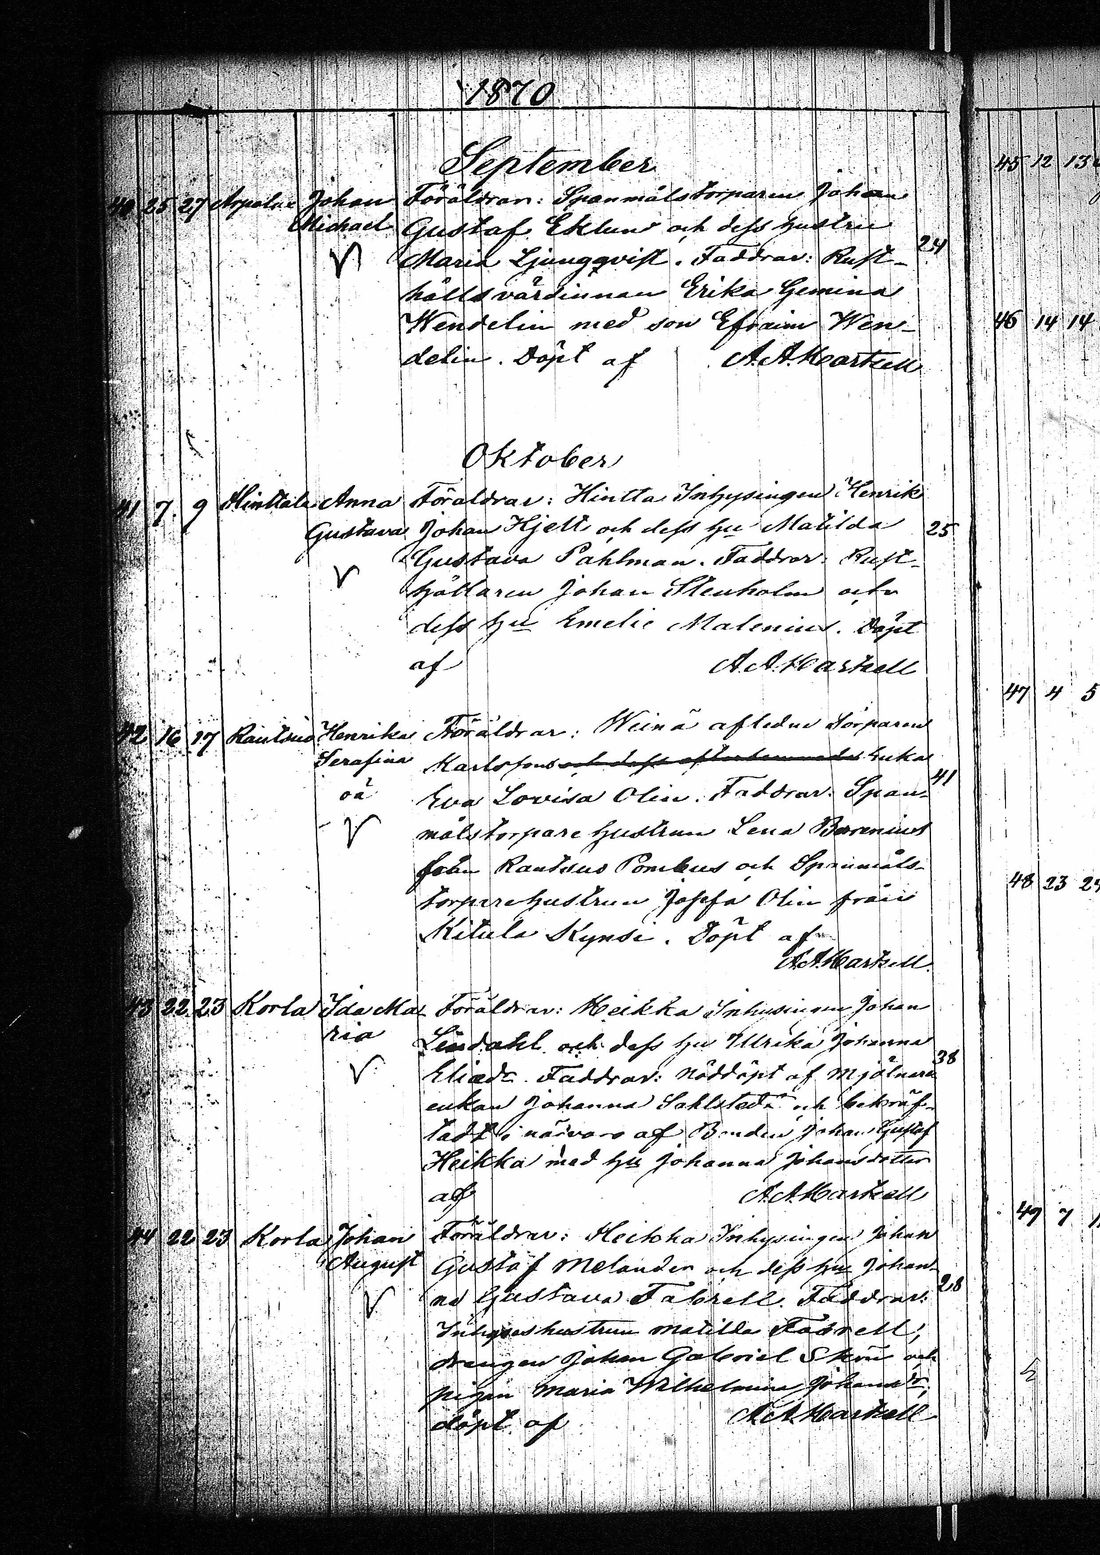 1870
September
40 25 27 Arpalne Johan Föräldrar: Spanmålstorparen Johan
Michael Gustaf Eklun och dess hustru
Maria Ljungqvist. Faddrar: Rust- 24
hålls värdinnan Erika Gemina
Wendelin med son Efraim Wen-
delin. Döpt af A. A. Hartzell
Oktober
41 7 9 Hinttala Anna Föräldrar: Hintta Inhysingen Henrik
Gustava Johan Hjelt och dess hu Matilda 25
Gustava Pahlman. Faddrar: Rust-
hållaren Johan Stenholm och
dess hu Emelie Malenius. Döpt
af A. A. Hartzell
42 16 17 Rautsuo Henrika Föräldrar: Weinä afledne Torparen
Serafina Karlssons och dess Enka
oä Eva Lovisa Olin. Faddrar: Span- 41
målstorpare hustrun Lena Barenius
från Rautsuo Pombus och Spanmåls-
torpare hustrun Josefa Olin från
Kitula Kynsi. Döpt af
A. A. Hartzell.
43 22 23 Korla Ida Ma Föräldrar: Heikka Inhysingen Johan
ria Lindahl och dess hu Ulrika Johanna 38
Faddrar: nöddöpt af Mjölnare
enkan Johanna Sahlstedt och bekräf-
tadt i närvaro af Bonden Johan Gustaf
Heikka med hu Johanna Johansdotter
af A. A. Hartzell
44 22 23 Korla Johan Föräldrar: Heikka Inhysingen Johan
August Gustaf Melander och dess hu Johan-
na Gustava Fabrell. Faddrar: 28
Inhyses hustrun Matilda Fabrell,
drengen Johan Gabriel och
pigan Maria Wilhelmina Johansdr,
döpt af A. A. Hartzell
45 12 13
46 14 14
47 4 5
48 23 24
49 7